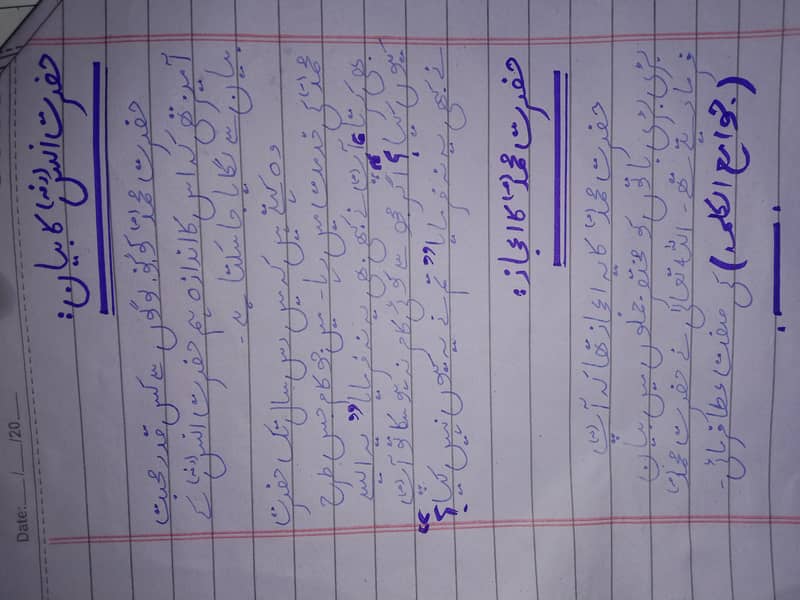 Date:___/___/20___
حضرت انس (رض) کا بیان:
حضرت محمد (ص) کو لوگوں سے کس قدر محبت
تھی اس کا اندازہ ہم حضرت انس (رض) کے
بیان سے لگا جا سکتا ہے۔
وہ کہتے ہیں کہ میں دس سال تک حضرت
محمد (ص) کی خدمت میں رہا۔ میں نے کام جس طرح
بھی کیا آپ (ص) نے کبھی یہ نہ فرمایا " یہ ایسے
کیوں کیا؟ اگر مجھ سے کوئی کام نہ ہو سکا تو آپ (ص)
نے کبھی یہ نہ فرمایا " تم نے یہ کیوں نہیں کیا؟"
حضرت محمد (ص) کا اعجاز:
حضرت محمد (ص) کا یہ اعجاز تھا کہ آپ (ص)
بڑی بڑی باتوں کو مختصر جملوں میں بیان
فرماتے تھے۔ اللہ تعالیٰ نے حضرت محمد (ص)
کو (جوامع الکلم) کی صفت عطا فرمائی۔